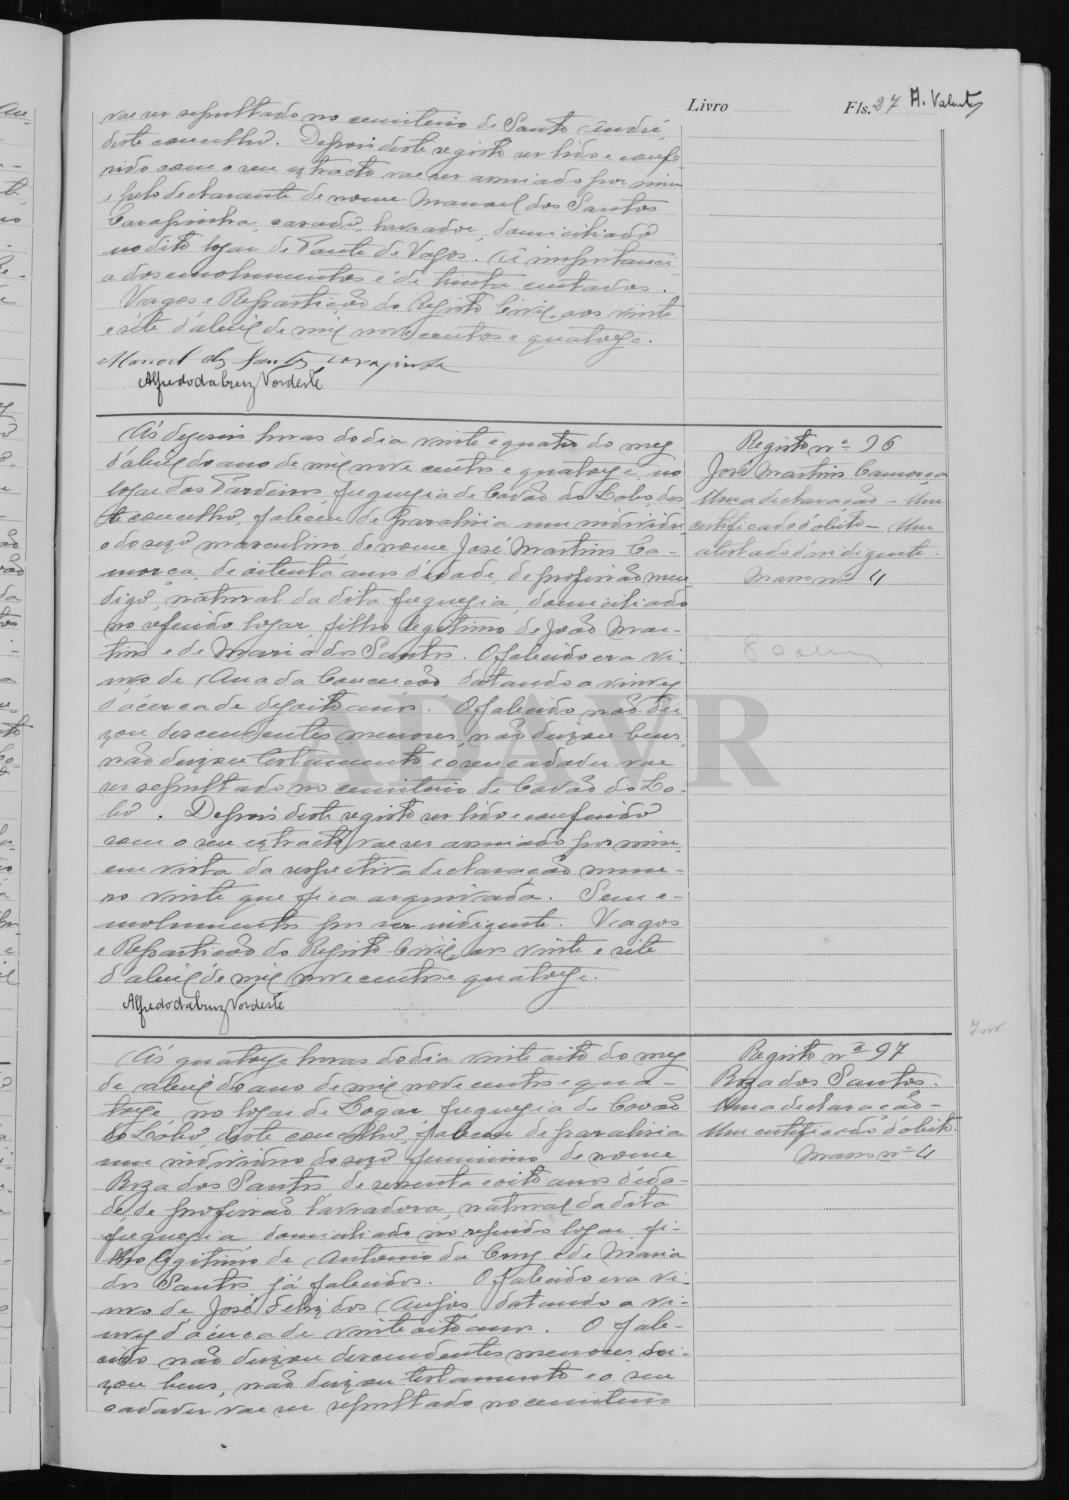 Livro Fls. 27 A. Valente
vae ser sepultado no cemiterio de Santo André,
deste concelho. Depois deste registo ser lido e confe-
rido com o seu extracto vae ser assinado por mim
e pelo declarante de nome Manuel dos Santos
Carapinha, casado, lavrador, domiciliado
no dito logar de Ponte de Vagos. A importanci-
a dos emolumentos é de trinta centavos.
Vagos e Repartição do Registo Civil, aos vinte
e sete d'abril de mil nove centos e quatorze.
Manoel dos Santos Carapinha
Alfredo da Cruz Nordeste
Às dezeseis horas do dia vinte e quatro do mez
d'abril do ano de mil nove centos e quatorze, no
logar dos Pardeiros freguezia de Covão do Lobo, des
te concelho, faleceu de paralisia um individu
o do sexo masculino, de nome José Martins Ca-
morca, de oitenta anos d'idade, de profissão men
digo, natural da dita freguezia, domiciliado
no referido logar, filho legitimo de João Mar-
tins e de Maria dos Santos. O falecido era vi-
uvo de Ana da Conceição datando a viuvez
d'ácerca de dezoito anos. O falecido não dei-
xou descendentes menores, não deixou bens,
não deixou testamento e o seu cadaver vae
ser sepultado no cemiterio de Covão do Lo-
bo. Depois deste registo ser lido e conferido
com o seu extracto vae ser assinado por mim,
em vista da respectiva declaração nume-
ro vinte que fica arquivada. Sem e-
molumentos por ser indigente. Vagos
e Repartição do Registo Civil, aos vinte e sete
d'abril de mil nove centos e quatorze.
Alfredo da Cruz Nordeste
Registo nº 96
José Martins Camorca
Uma declaração - Um
certificado d'obito - Um
atestado d'indigente.
Masso nº 4
ADAVR
Às quatorze horas do dia vinte oito do mez
de abril do ano de mil nove centos e qua-
torze, no logar de freguezia de Covão
do Lobo, deste concelho, faleceu de paralisia
um individuo do sexo femenino de nome
Roza dos Santos, de sessenta e oito anos d'ida-
de, de profissão lavradora, natural da dita
freguezia domiciliada no referido logar, fi-
lha legitima de Antonio da Cruz e de Maria
dos Santos já falecidos. O falecido era vi-
uvo de José Feliz dos Anjos, datando a vi-
uvez d'ácerca de vinte oito anos. O fale-
cido não deixou descendentes menores, dei-
xou bens, não deixou testamento e o seu
cadaver vae ser sepultado no cemiterio
Registo nº 97
Roza dos Santos.
Uma declaração -
Um certificado d'obito.
Masso nº 4